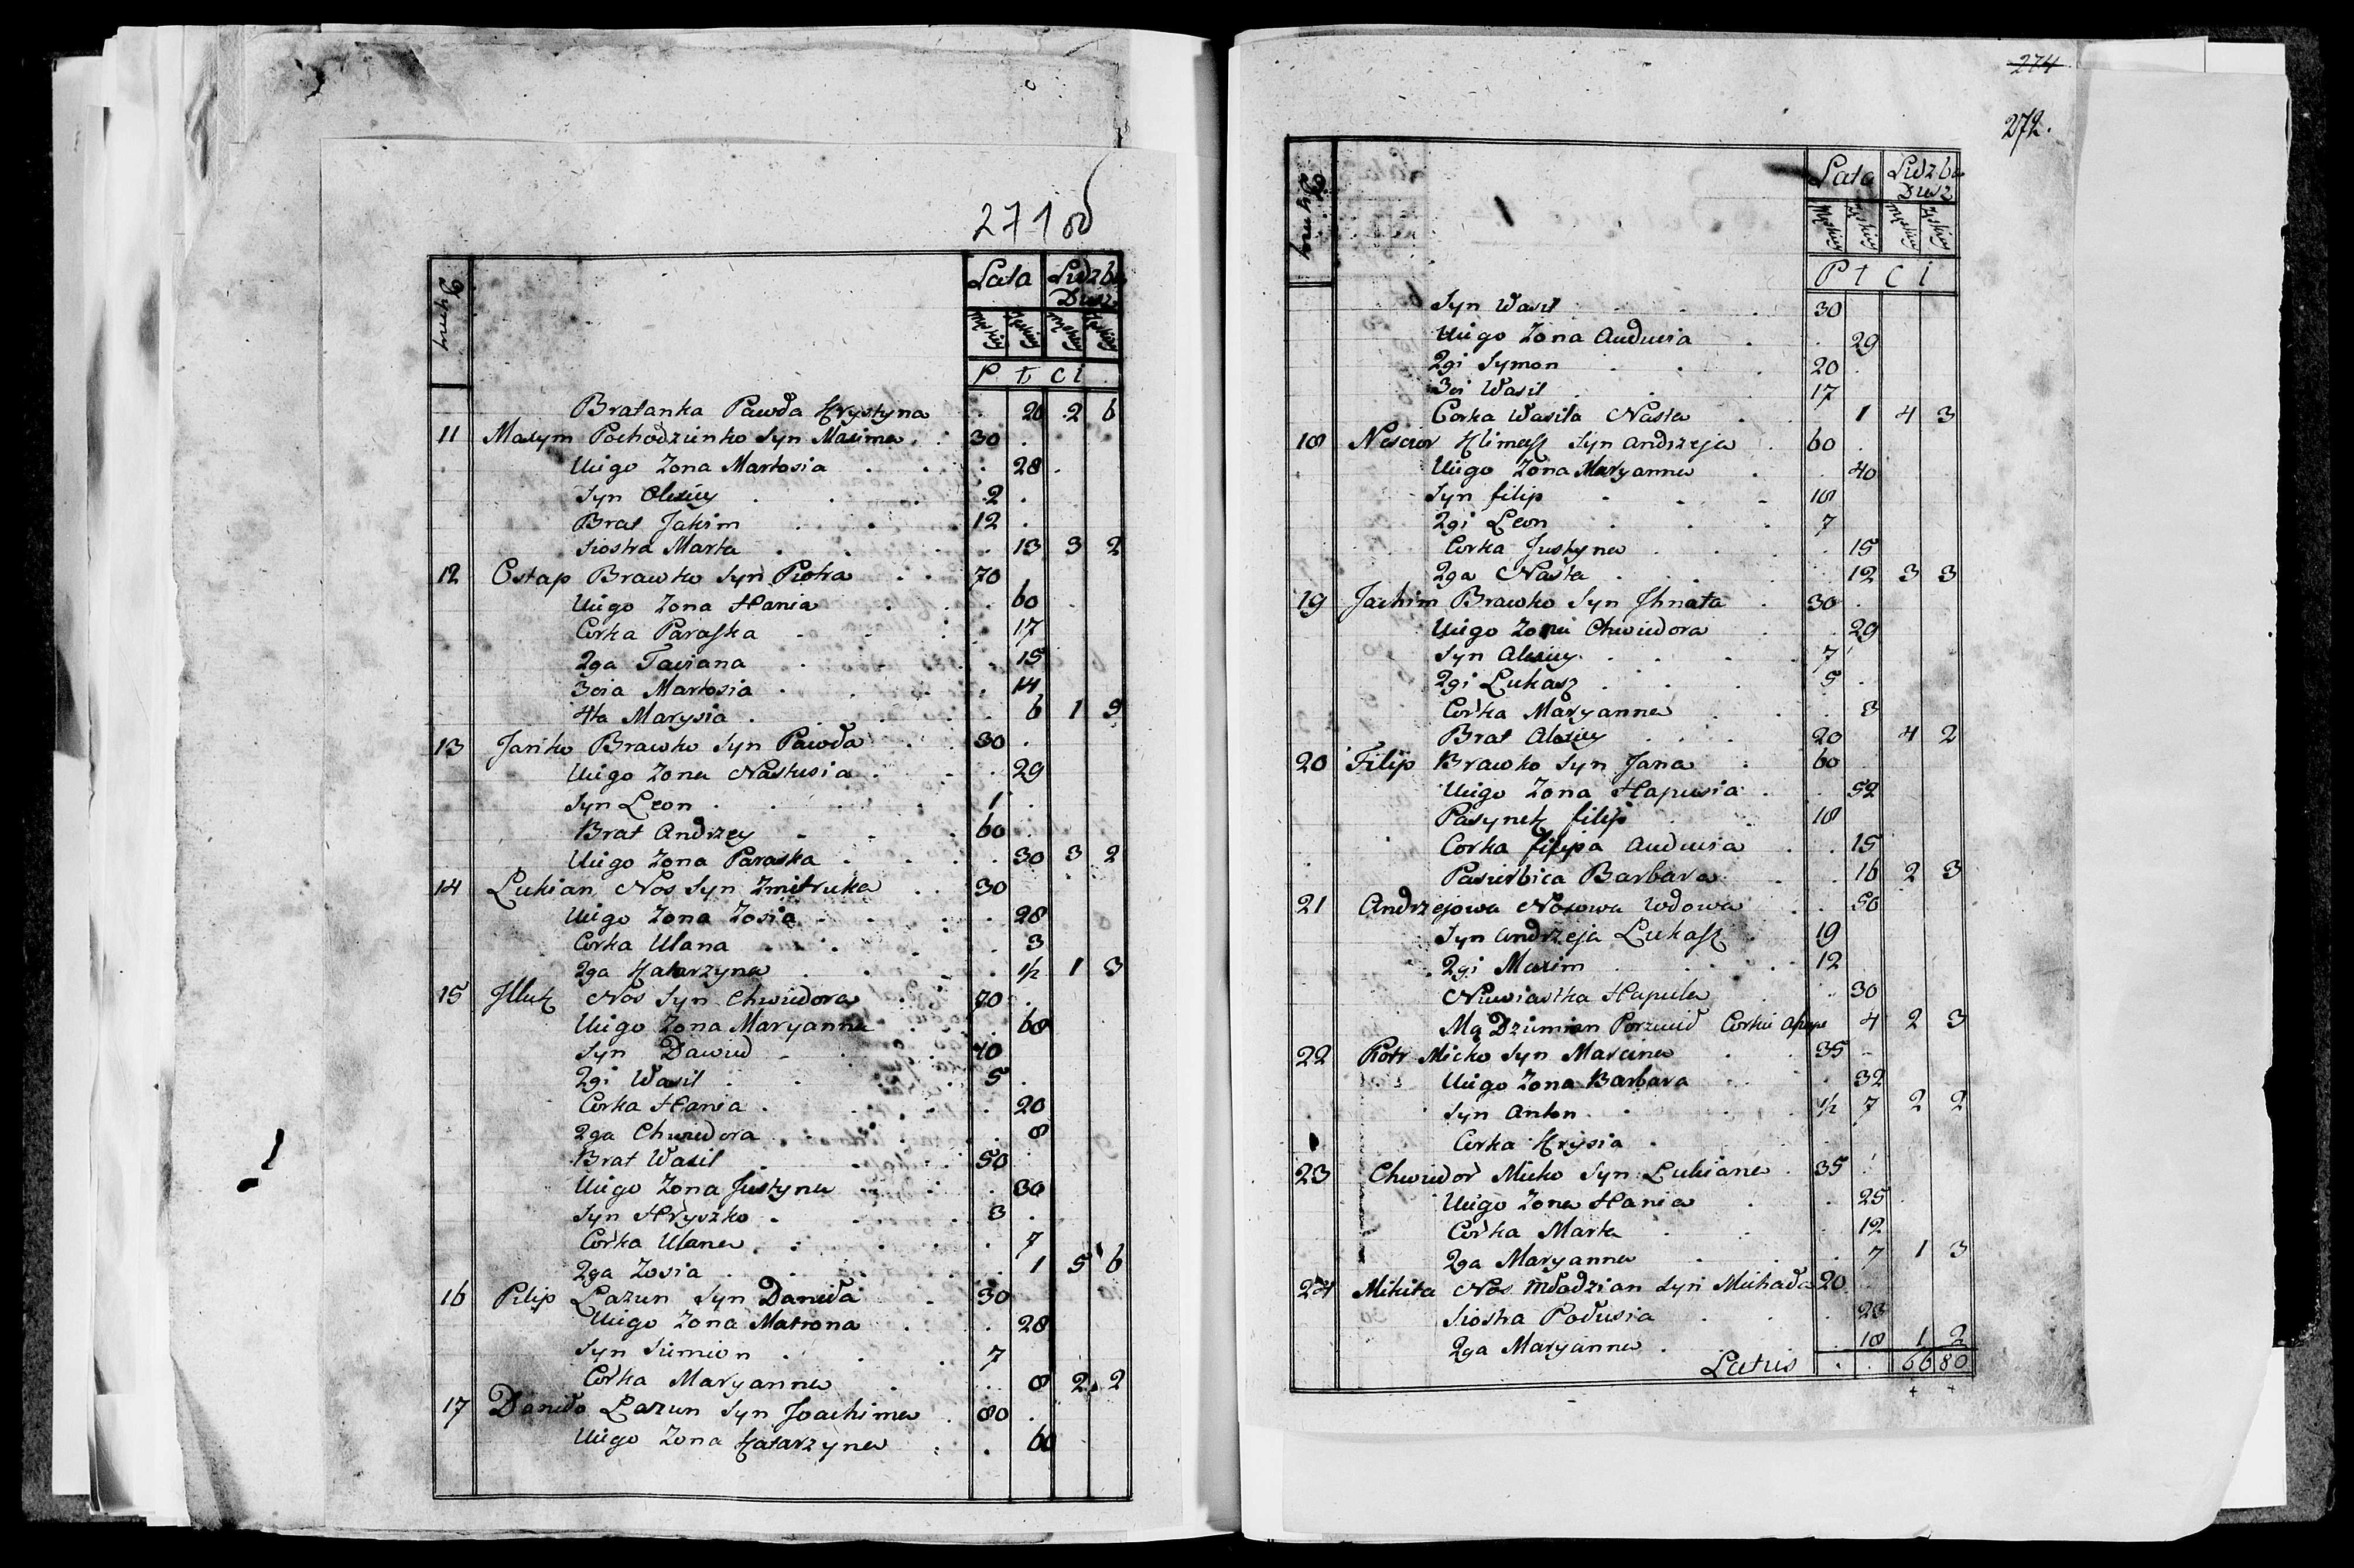 271 об
Dymy
Lata Liczba Dusz
Męskie Żeńskie Męskie Żeńskie
P. t. c i
Bratanka Pawła Krystyna . 20 2 6
11 Maxym Pochodzienko Syn Maxima 30
U niego Zona Martosia 28
Syn Olexiey 2
Brat Jakim 12
Siostra Marta 13 3 2
12 Ostap Brawko Syn Piotra 70
U niego Zona Hania 60
Corka Paraska 17
2ga Taciana 15
3cia Martosia 14
4ta Marysia 6 1 5
13 Janko Brawko Syn Pawła 30
U niego Zona Nastusia 29
Syn Leon 1
Brat Andrzey 60
U niego Zona Paraska 30 3 2
14 Lukian Nos Syn Zmitruka 30
U niego Zona Zosia 28
Corka Ulana 3
2ga Katarzyna 1/2 1 3
15 Illuk Nos Syn Chwiedora 70
U niego Zona Maryanna 60
Syn Dawid 10
2gi Wasil 5
Corka Hania 20
2ga Chwiedora 8
Brat Wasil 50
U niego Zona Justyna 30
Syn Hryszko 3
Corka Ulana 7
2ga Zosia 1 5 6
16 Pilip Lazun Syn Daniła 30
U niego Zona Matrona 28
Syn Siemion 7
Corka Maryanna 8 2 2
17 Daniło Lazun Syn Joachima 80
U niego Zona Katarzyna 60
274
272.
Dymy
Lata Liczba Dusz
Męskie Żeńskie Męskie Żeńskie
P t c i
Syn Wasil 30
U niego Zona Audocia 29
2gi Symon 20
3ci Wasil 17
Corka Wasila Nasta 1 4 3
18 Nescior Klimasz Syn Andrzeja 60
U niego Zona Maryanna 40
Syn filip 18
2gi Leon 7
Corka Justyna 15
2ga Nasta 12 3 3
19 Jachim Brawko Syn Ihnata 30
U niego Zona Chwiedora 29
Syn Alexiey 7
2gi Lukasz 5
Corka Maryanna 3
Brat Alexiey 20 4 2
20 Filip Brawko Syn Jana 60
U niego Zona Hapusia 52
Pasynek filip 18
Corka filipa Audocia 15
Pasierbica Barbara 16 2 3
21 Andrzejowa Nosowa Wdowa 50
Syn Andrzeja Lukasz 19
2gi Maxim 12
Niewiastka Hapula 30
Mą Dziemian Corka 4 2 3
22 Piotr Micko Syn Marcina 35
U niego Zona Barbara 32
Syn Anton 1/2 7 2 2
Corka Krysia
23 Chwiedor Micko Syn Lukiana 35
U niego Zona Hania 25
Corka Marta 12
2ga Maryanna 7 1 3
24 Mikita Nos Młodzian Syn Michała 20
Siostra Połusia 23
2ga Maryanna 18 1 2
Latus . . 66 80